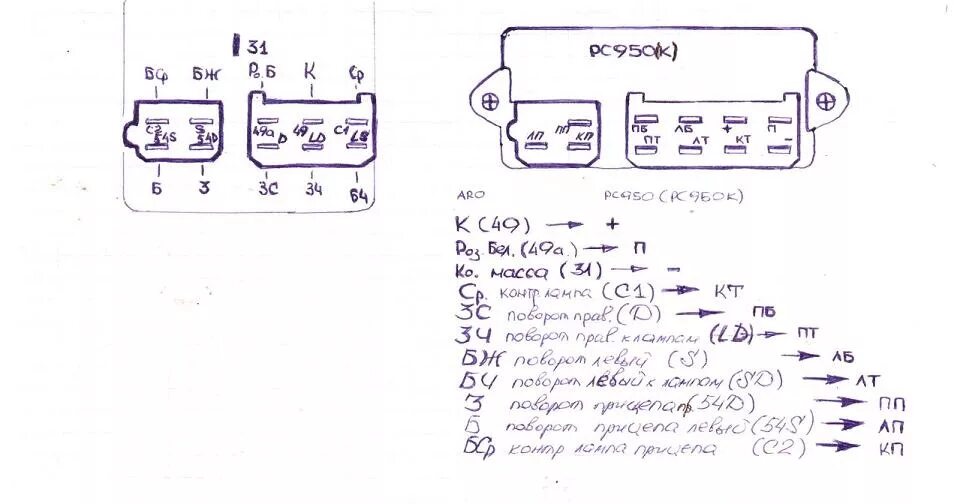 31
БЧ БЖ Роз.Б К Ср
С2 S 49а 49 С1
54S 54D D LD LS
Б З ЗС ЗЧ БЧ
РС950(К)
ПП ПБ ЛБ + П
ЛП КП ПТ ЛТ КТ -
ARO РС950 (РС950К)
К (49) → +
Роз.Бел. (49а.) → П
Ко. масса (31) → -
Ср. контр лампа (С1) → КТ
ЗС поворот прав. (D) → ПБ
ЗЧ поворот прав. к лампам (LD) → ПТ
БЖ поворот левый (S) → ЛБ
БЧ поворот левый к лампам (SD) → ЛТ
З поворот прицепа пр. (54D) → ПП
Б поворот прицепа левый (54S) → ЛП
БСр контр лампа прицепа (С2) → КП